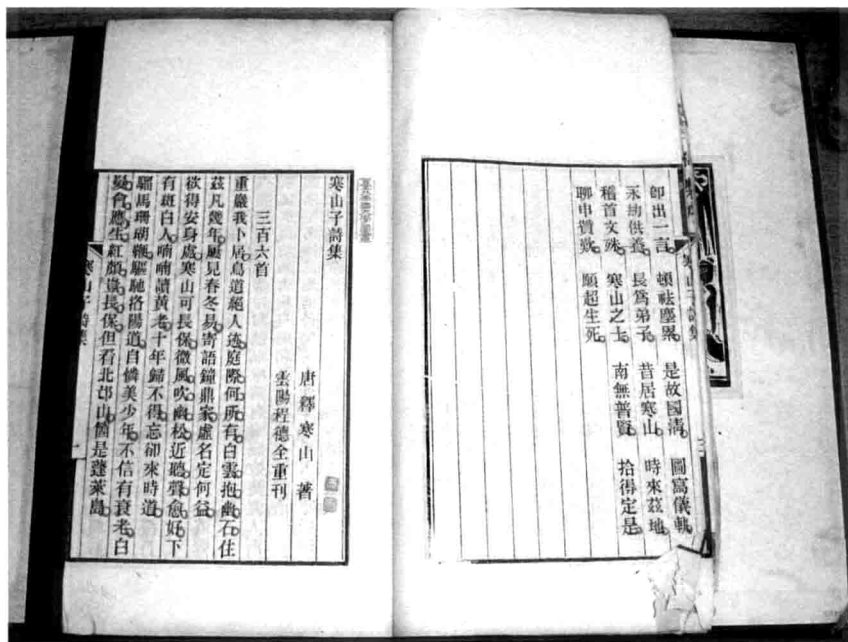 寒山子詩集
即出一言。頓祛塵累。是故國清。圖寫儀軌。
永劫供養。長為弟子。昔居寒山。時來茲地。
稽首文殊。寒山之士。南無普賢。拾得定是。
聊申贊歎。願超生死。
寒山子詩集
唐釋寒山著
雲陽程德全重刊
三百六首
重巖我卜居。鳥道絕人迹。庭際何所有。白雲抱幽石。住
茲凡幾年。屢見春冬易。寄語鐘鼎家。虛名定何益。
欲得安身處。寒山可長保。微風吹幽松。近聽聲愈好。下
有斑白人。喃喃讀黃老。十年歸不得。忘卻來時道。
騮馬珊瑚鞭。驅馳洛陽道。自憐美少年。不信有衰老。白
髮會應生。紅顏豈長保。但看北邙山。箇是蓬萊島。
寒山子詩集 一